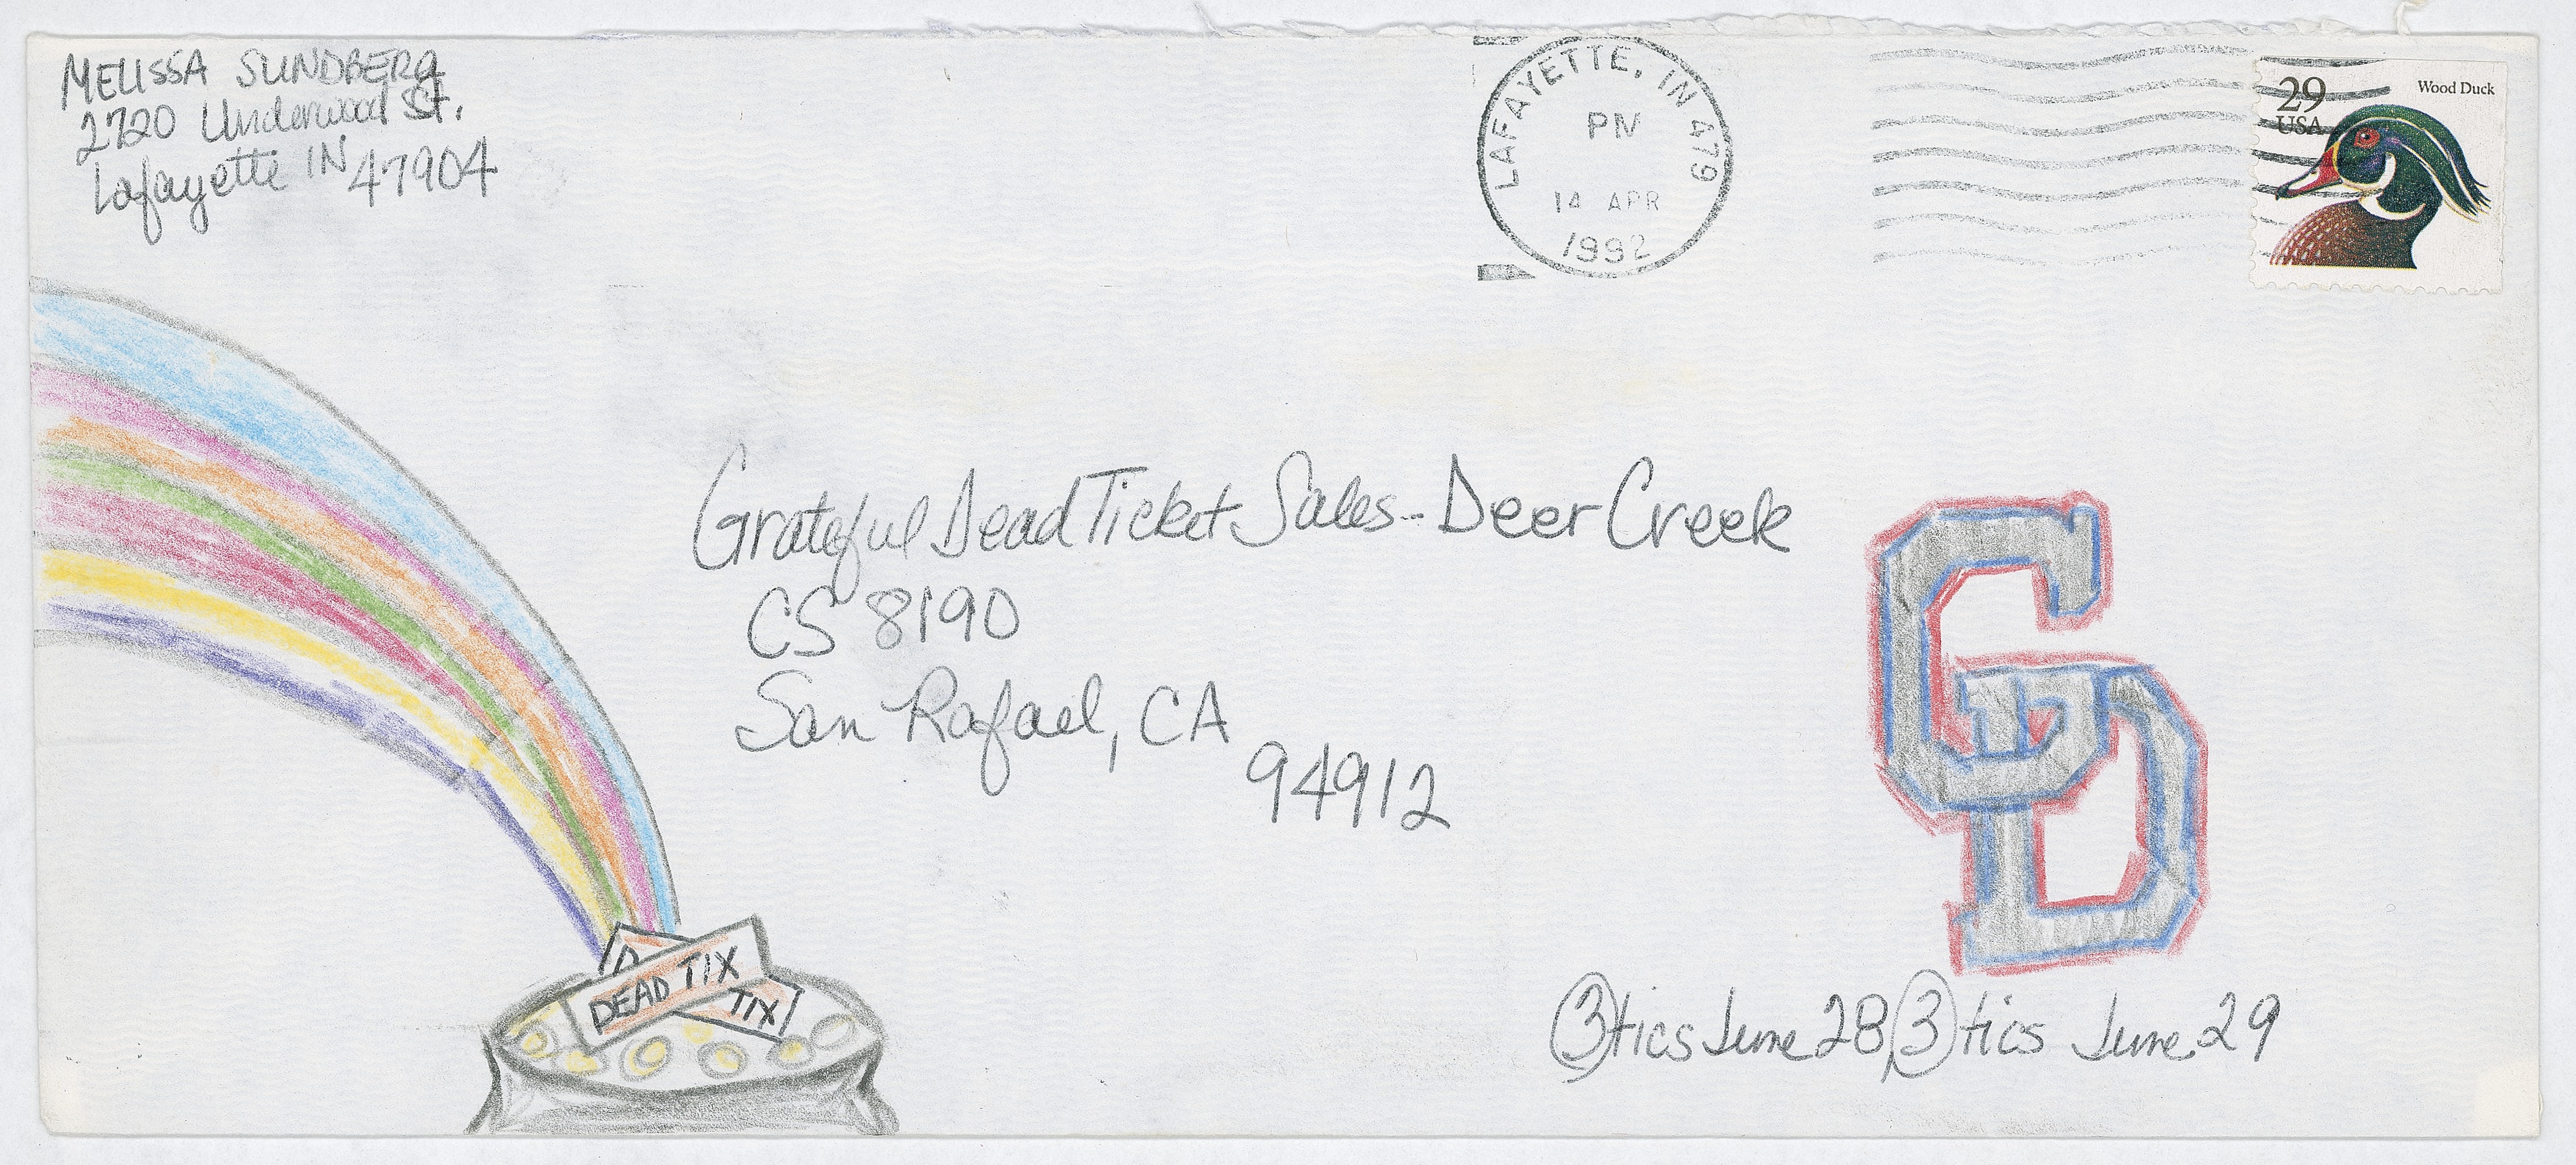 MELISSA SUNDBERG
2720 Underwood St.
Lafayette IN 47904
LAFAYETTE, IN 479
PM
14 APR
1992
29
USA
Wood Duck
Grateful Dead Ticket Sales - Deer Creek
CS 8190
San Rafael, CA
94912
GD
D
DEAD TIX
TIX
3 tics June 28, 3 tics June 29